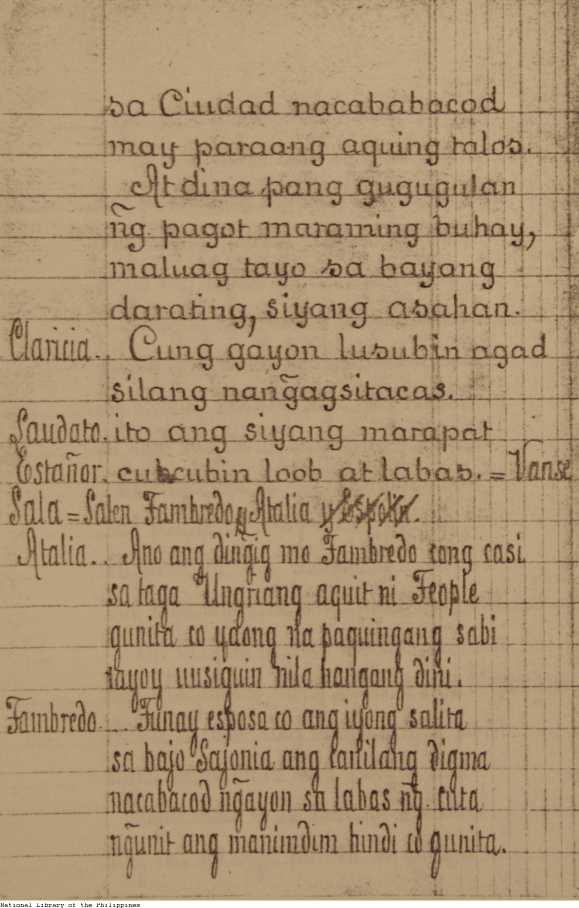 sa Ciudad nacababacod
may paraang aquing talos.
At dina pang gugugulan
ñg pagot maraming buhay,
maluag tayo sa bayang
darating, siyang asahan.
Claricia.. Cung gayon lusubin agad
silang nang̃agsitacas.
Saudato. ito ang siyang marapat
Estañor. cubcubin loob at labas. = Vanse
Sala = Salen Fambredo y Atalia
Atalia.. Ano ang ding̃ig mo Fambredo cong casi
sa taga Ungriang aquit ni Feople
gunita co ydong na paquingang sabi
tayoy uusiguin nila hangang dini.
Fambredo... Tunay esposa co ang iyong salita
sa bajo Sajonia ang canilang digma
nacabacod ng̃ayon sa labas ng̃ cuta
ng̃unit ang manimdim hindi co gunita.
National Library of the Philippines